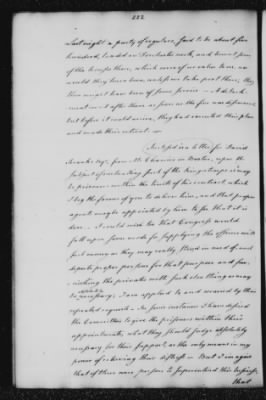 222
Last night a party of regulars, said to be about five
hundred, landed on Dorchester neck, and burnt some
of the houses there, which were of no value to us, nor
would they have been, unless we take post there; they
then might have been of some service. A detach
ment went after them as soon as the fire was discovered,
but before it could arrive, they had executed their plan
and made their retreat.
Inclosed is a letter for David
Franks Esqr. from Mr. Chamier in Boston, upon the
subject of victualling such of the King's troops as may
be prisoners within the limits of his contract, which
I beg the favor of you to deliver him, and that proper
agents may be appointed by him to see that it is
done. I could wish too that Congress would
fall upon some mode for supplying the officers with
such money as they may really stand in need of, and
depute proper persons for that purpose and fur-
nishing the privates with such cloathing as may
be absolutely necessary; I am applied to and wearied by their
repeated requests. In some instances I have desired
the Committees to give the prisoners within their
appointments, what they should judge absolutely
necessary for their support, as the only means in my
power of relieving their distress. But I imagine
that if there were persons to superintend this business,
that